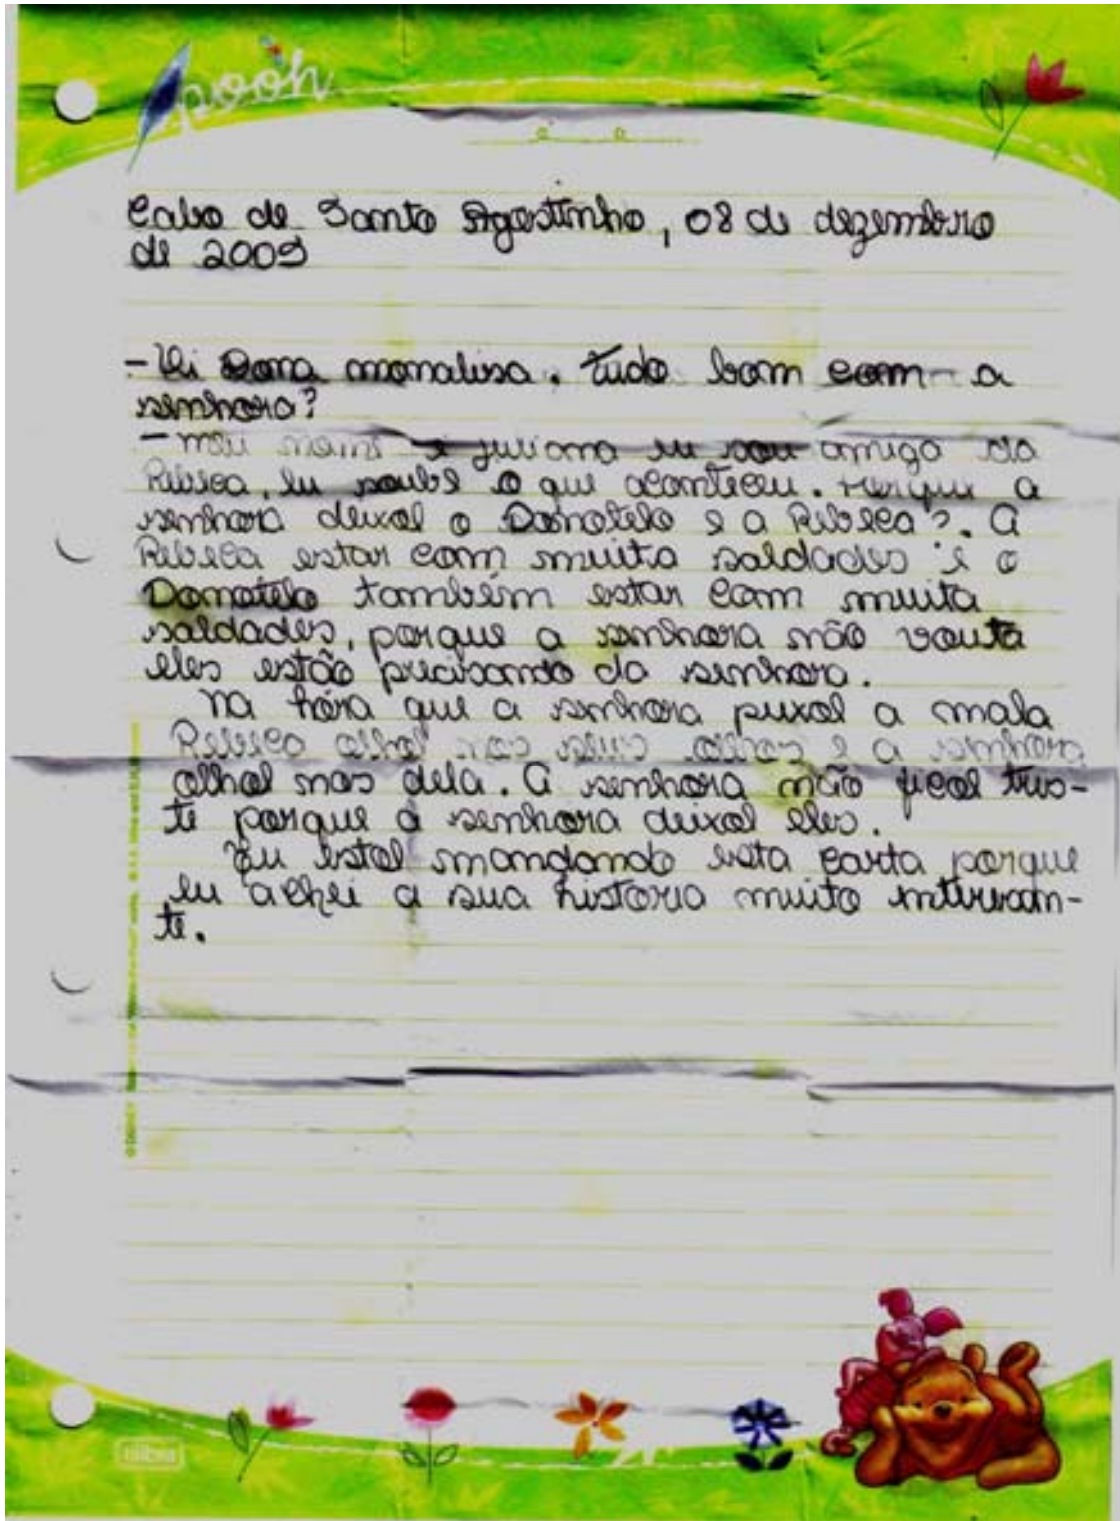 pooh
Cabo de Santo Agostinho, 08 de dezembro
de 2009
- Oi Dona monaliza. tudo bom com a
senhora?
- meu nome é juliana eu sou amiga da
Rebeca, eu soube o que aconteceu. Porque a
senhora deixol o Donatelo e a Rebeca?. A
Rebeca estar com muita saldades e o
Donatelo também estar com muita
saldades, porque a senhora não vouta
eles estão precisando da senhora.
Na hóra que a senhora puxol a mala
Rebeca olhol nos seus olhos e a senhora
olhol nos dela. A senhora não ficol tris-
te porque a senhora deixol eles.
Eu estol mandando esta carta porque
eu achei a sua historia muito interesan-
te.
tilibra